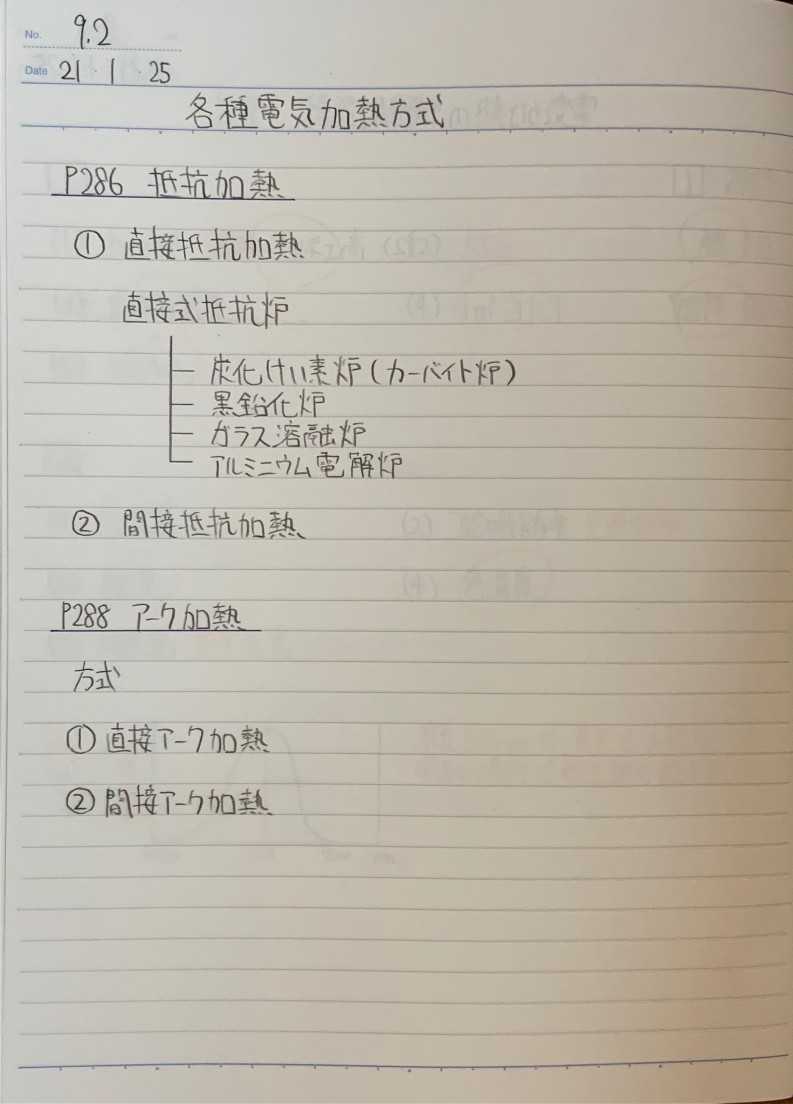 No. 9.2
Date 21・1・25
各種電気加熱方式
P286 抵抗加熱
① 直接抵抗加熱
直接式抵抗炉
炭化けい素炉(カーバイト炉)
黒鉛化炉
ガラス溶融炉
アルミニウム電解炉
② 間接抵抗加熱
P288 アーク加熱
方式
① 直接アーク加熱
② 間接アーク加熱